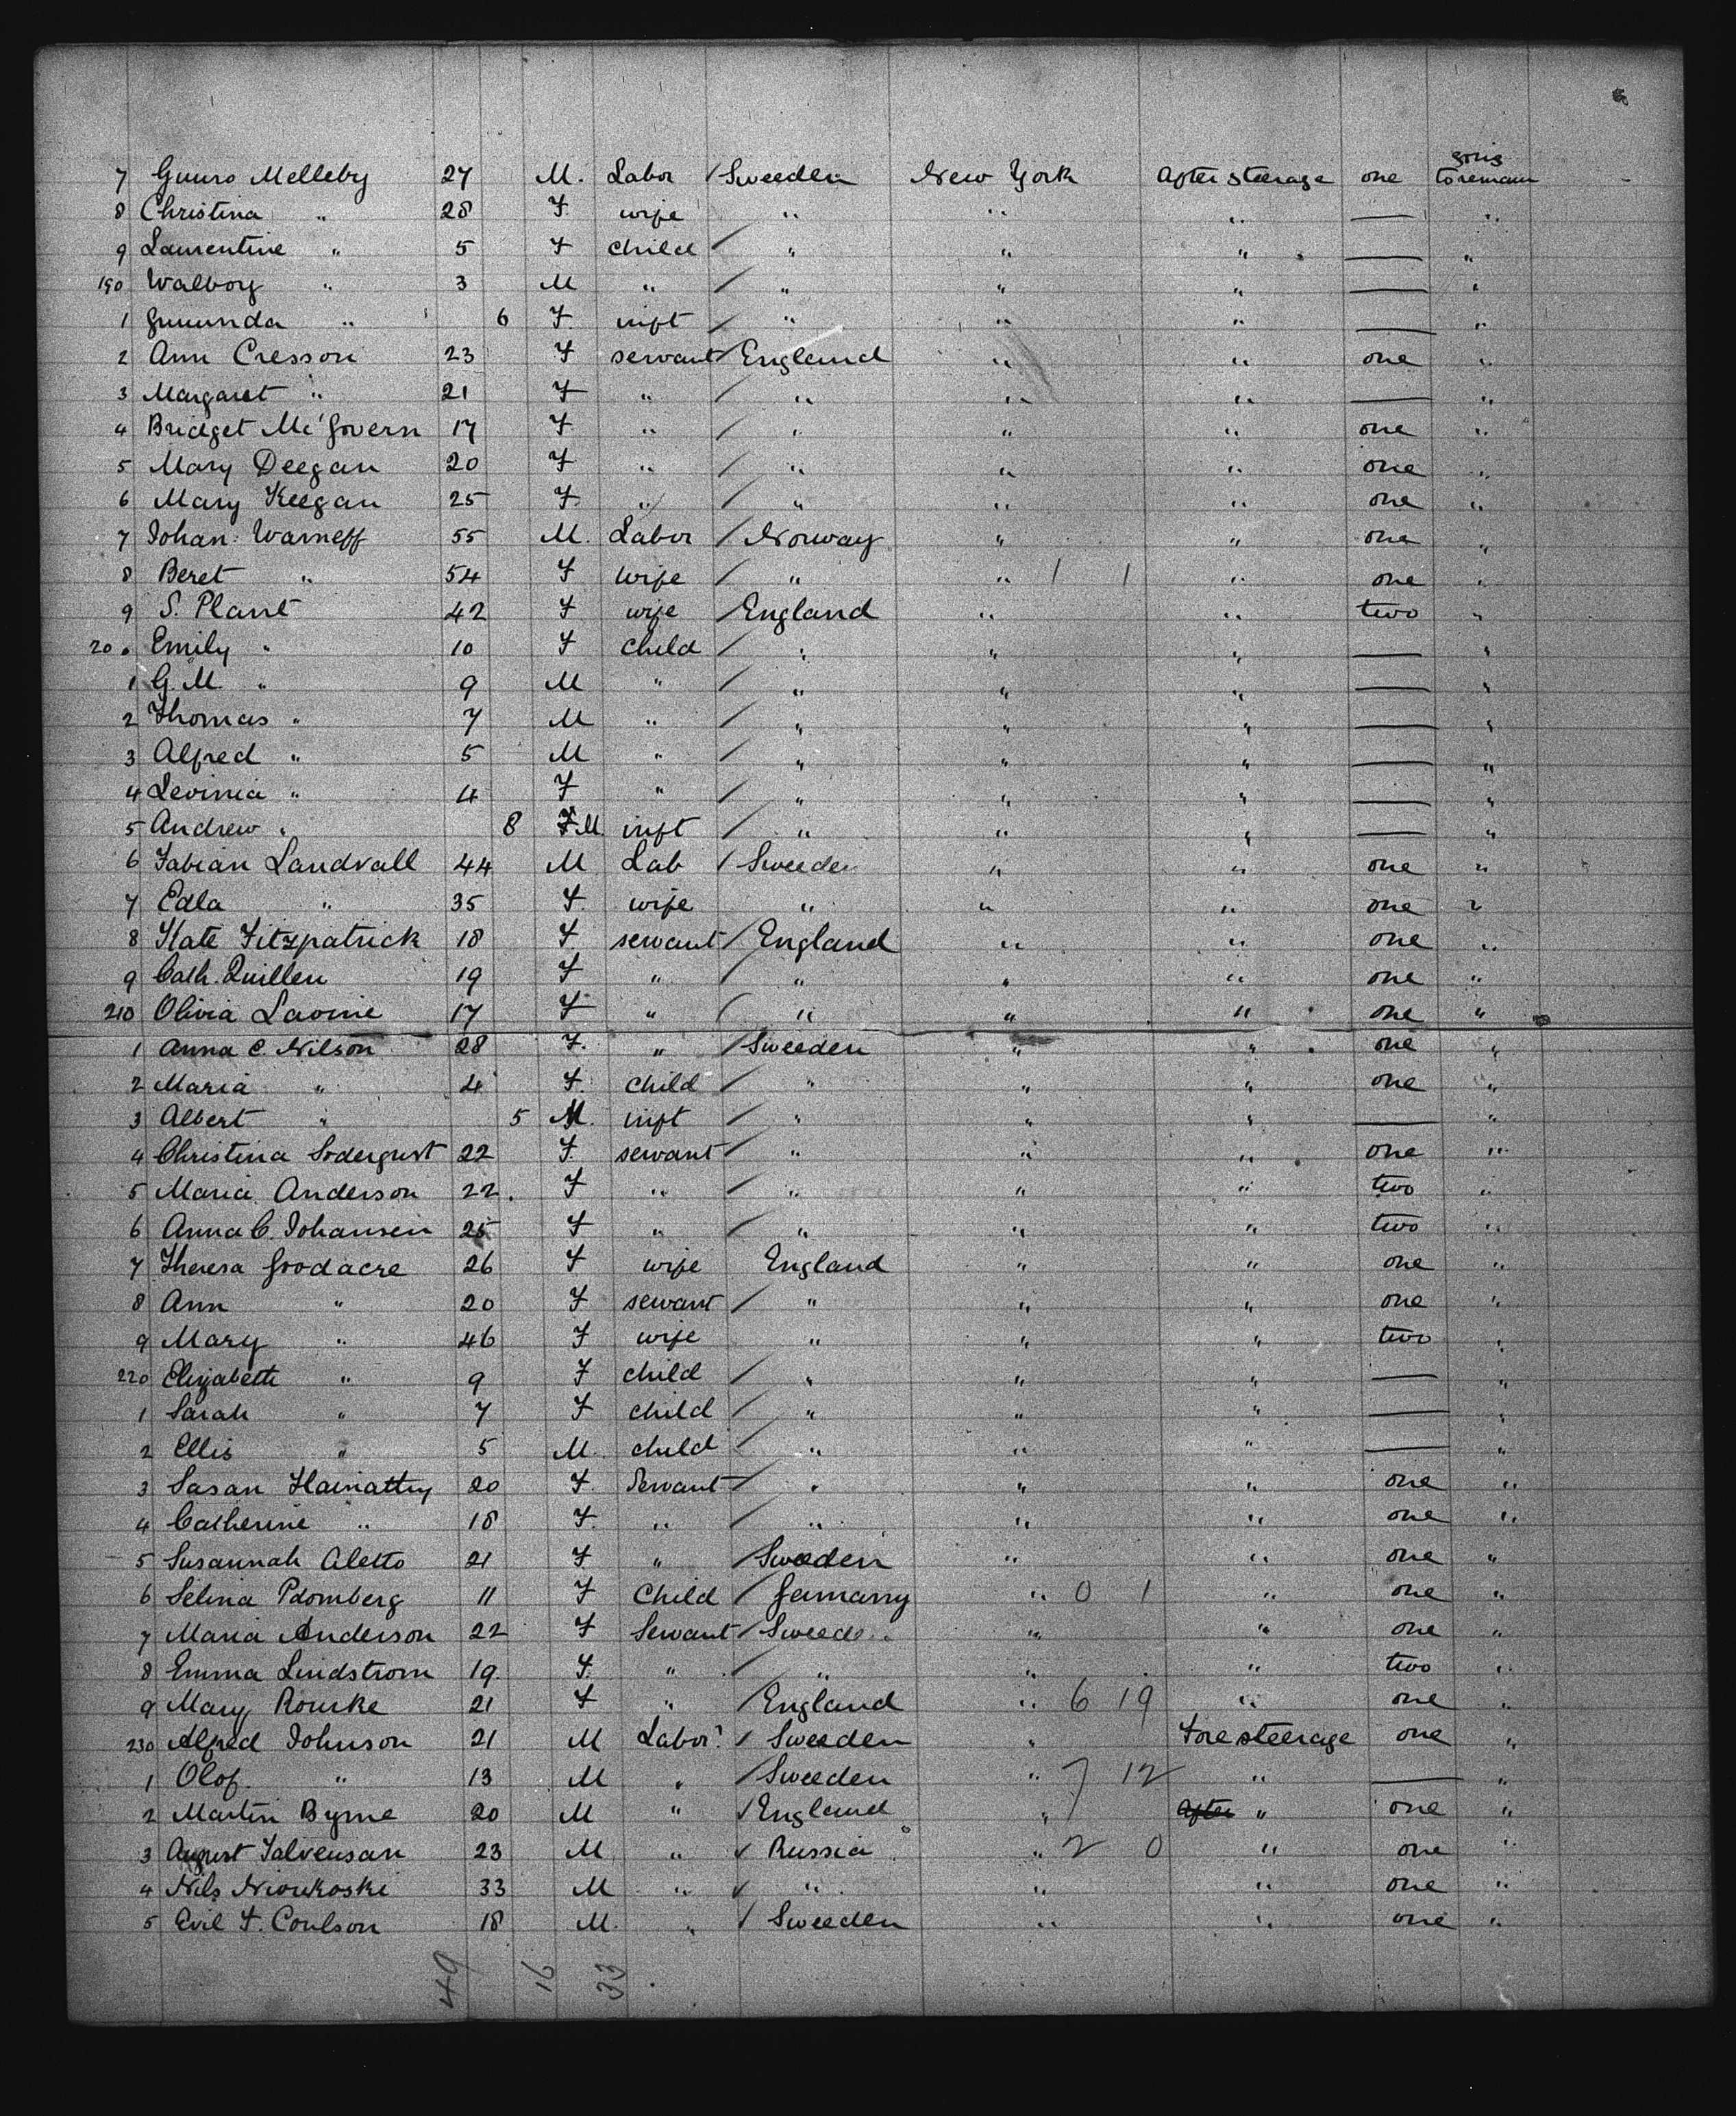 7 Gunro Melleby 27 M. Labor / Sweeden New York After steerage one going to remain
8 Christina " 28 F. wife " " " — "
9 Laurentine " 5 F child / " " " — "
190 Walborg " 3 M " / " " " — "
1 " 6 F. inft / " " " — "
2 Ann Cresson 23 F servant / England " " one "
3 Margaret " 21 F " / " " " — "
4 Bridget Mc'Govern 17 F " / " " " one "
5 Mary Deegan 20 F " / " " " one "
6 Mary Keegan 25 F. " / " " " one "
7 Johan Warneff 55 M. Labor / Norway " " one "
8 Beret " 54 F wife / " " 1 1 " one "
9 S. Plant 42 F wife / England " " two "
20. Emily " 10 F child / " " " — "
1 G. M. " 9 M " / " " " — "
2 Thomas " 7 M " / " " " — "
3 Alfred " 5 M " / " " " — "
4 Levinia " 4 F " / " " " — "
5 Andrew " 8 F M. inft / " " " — "
6 Fabian Landvall 44 M Lab / Sweeden " " one "
7 Edla " 35 F. wife " " " one "
8 Kate Fitzpatrick 18 F. servant / England " " one "
9 Cath. Quillen 19 F " / " " " one "
210 Olivia Lavine 17 F " / " " " one "
1 Anna C. Nilson 28 F. " / Sweeden " " one "
2 Maria " 4 F. child / " " " one "
3 Albert " 5 M. inft / " " " — "
4 Christina Sodergust 22 F. servant / " " " one "
5 Maria Anderson 22. F " / " " " two "
6 Anna C. Johansen 25 F " / " " " two "
7 Theresa Goodacre 26 F wife England " " one "
8 Ann " 20 F servant / " " " one "
9 Mary " 46 F wife " " " two "
220 Elizabeth " 9 F child / " " " — "
1 Sarah " 7 F child / " " " — "
2 Ellis " 5 M. child / " " " — "
3 Susan 20 F. Servant / " " " one "
4 Catherine " 18 F. " / " " " one "
5 Susannah Aletto 21 F " / Sweden " " one "
6 Selina 11 F Child / Germany " 0 1 " one "
7 Maria Anderson 22 F Servant / Sweede " " one "
8 Emma Lindstrom 19. F. " / " " " two "
9 Mary Rourke 21 F " / England " 6 19 " one "
230 Alfred Johnson 21 M Labor / Sweeden " Fore steerage one "
1 Olof " 13 M " / Sweeden " 7 12 " — "
2 Martin Byrne 20 M " / England " After " one "
3 August 23 M " / Russia " 2 0 " one "
4 Nils 33 M " / " " " one "
5 Coulson 18 M. " / Sweeden " " one "
49 16 33